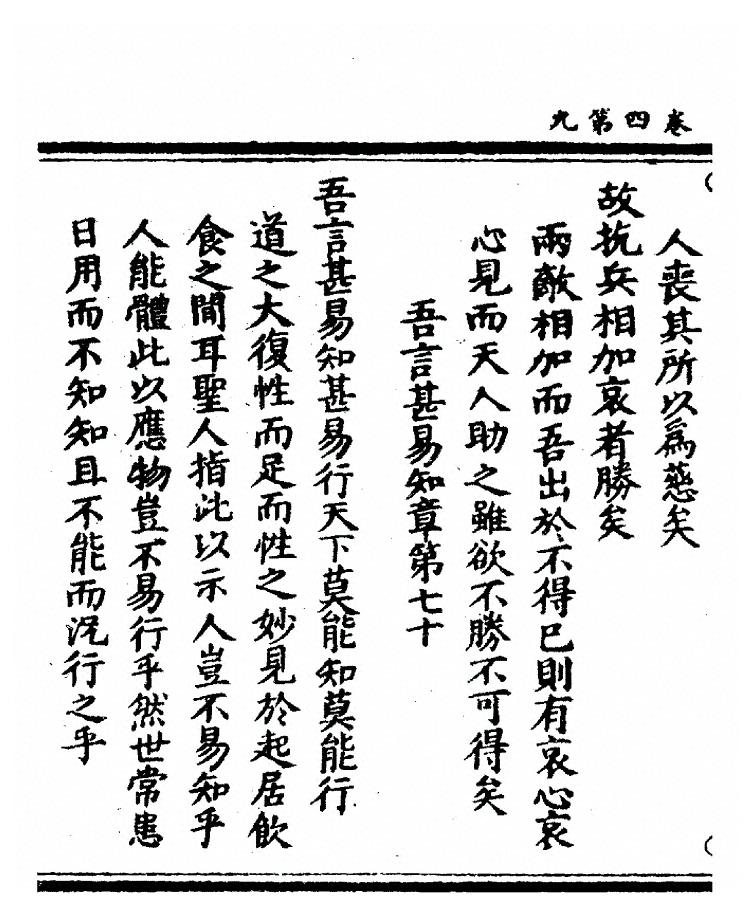 卷四第九
人喪其所以為慈矣
故抗兵相加哀者勝矣
兩敵相加而吾出於不得已則有哀心哀
心見而天人助之雖欲不勝不可得矣
吾言甚易知章第七十
吾言甚易知甚易行天下莫能知莫能行
道之大復性而足而性之妙見於起居飲
食之間耳聖人指此以示人豈不易知乎
人能體此以應物豈不易行乎然世常患
日用而不知知且不能而況行之乎